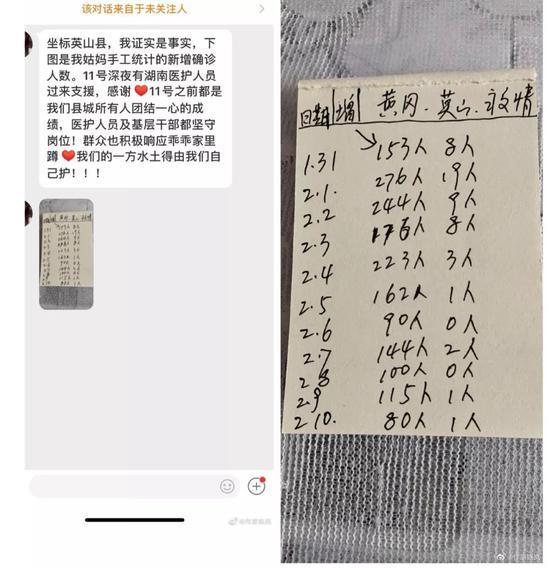 该对话来自于未关注人
坐标英山县，我证实是事实，下
图是我姑妈手工统计的新增确诊
人数。11号深夜有湖南医护人员
过来支援，感谢❤️11号之前都是
我们县城所有人团结一心的成
绩，医护人员及基层干部都坚守
岗位！群众也积极响应乖乖家里
蹲❤️我们的一方水土得由我们自
己护！！！
日期 增 黄冈. 英山.
1.31 153人 8人
2.1. 276人 19人
2.2 244人 9人
2.3 176人 8人
2.4 223人 3人
2.5 162人 1人
2.6 90人 0人
2.7 144人 2人
2.8 100人 0人
2.9 115人 1人
2.10. 80人 1人